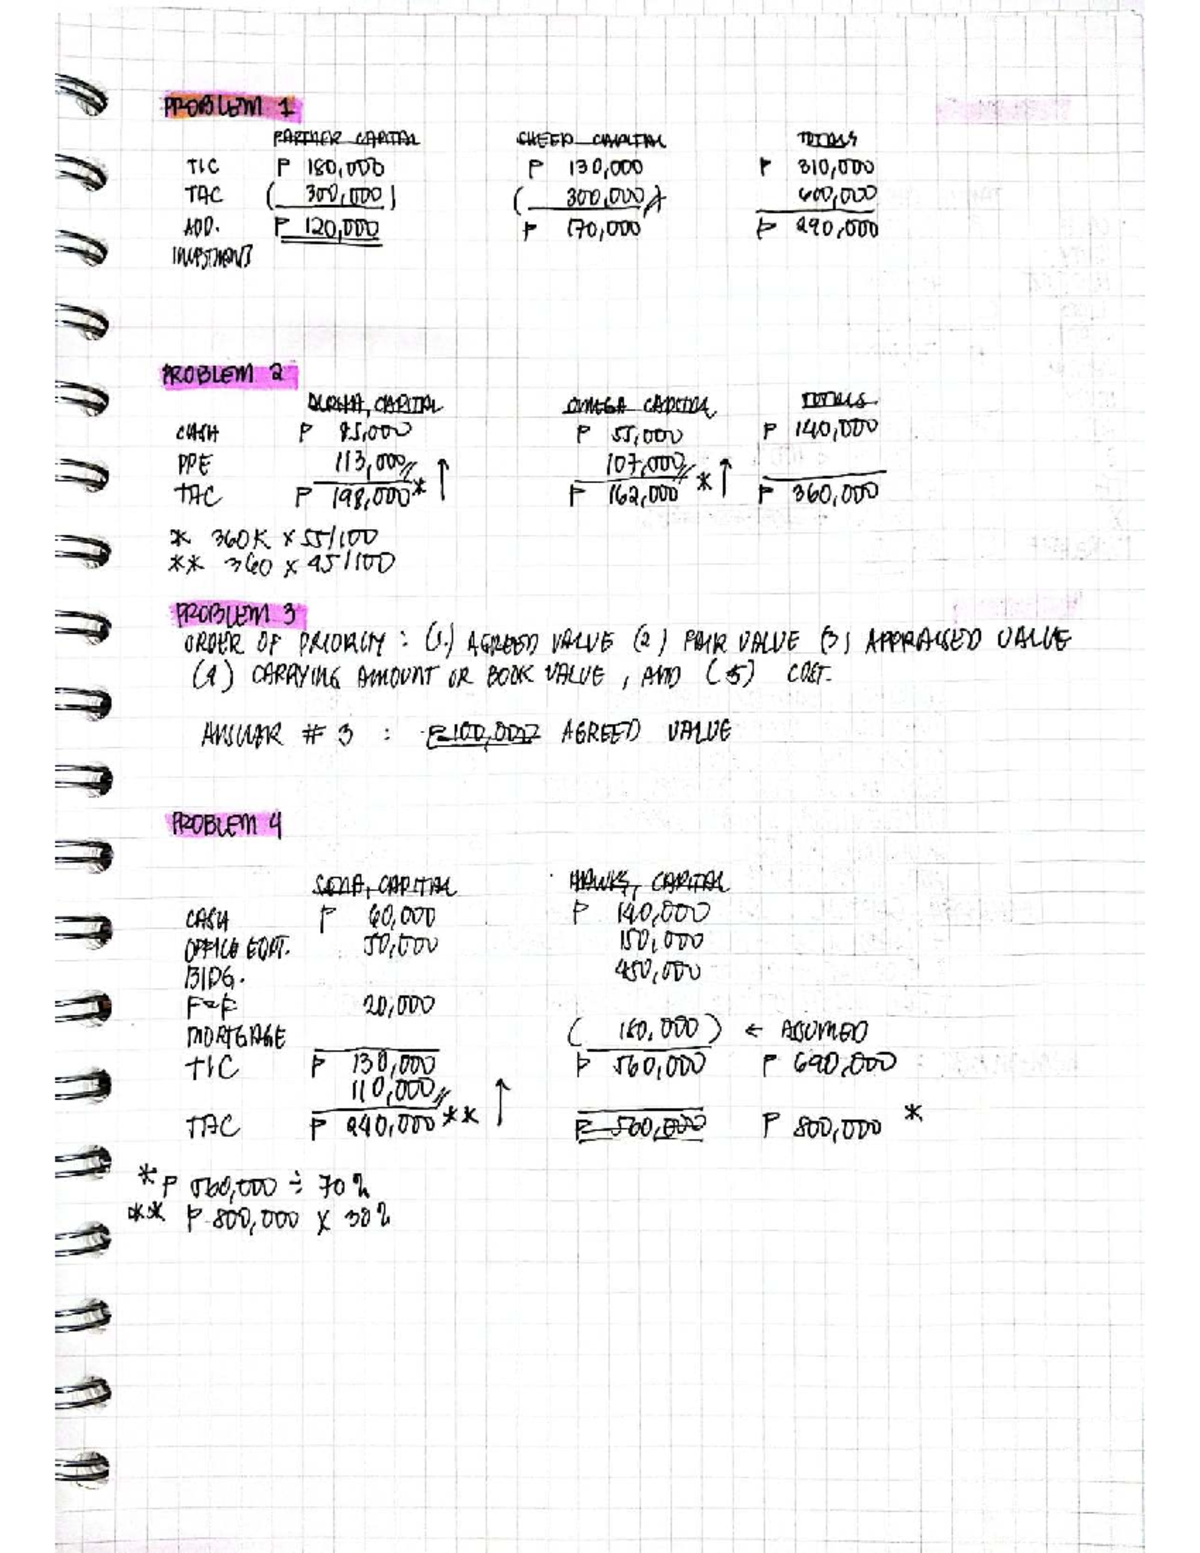 PROBLEM 1
PARTNER CAPITAL CAPITAL TOTALS
TIC P 180,000 P 130,000 P 310,000
TAC ( 300,000 ) ( 300,000 ) 600,000
ADD. P 120,000 P 170,000 P 290,000
INVESTMENT
PROBLEM 2
ALPHA, CAPITAL OMEGA CAPITAL TOTALS
CASH P 85,000 P 55,000 P 140,000
PPE 113,000// ↑ 107,000// ↑
TAC P 198,000 * P 162,000 * P 360,000
* 360K x 55/100
** 360 x 45/100
PROBLEM 3
ORDER OF PRIORITY : (1.) AGREED VALUE (2) FAIR VALUE (3) APPRAISED VALUE
(4) CARRYING AMOUNT OR BOOK VALUE, AND (5) COST.
ANSWER # 3 : P 100,000 AGREED VALUE
PROBLEM 4
CAPITAL HAWKS, CAPITAL
CASH P 60,000 P 140,000
OFFICE EQPT. 50,000 150,000
BLDG. 450,000
F&F 20,000
MORTGAGE ( 180,000 ) ← ASSUMED
TIC P 130,000 P 560,000 P 690,000
110,000// ↑
TAC P 240,000 ** P 560,000 P 800,000 *
* P 560,000 ÷ 70%
** P 800,000 x 30%